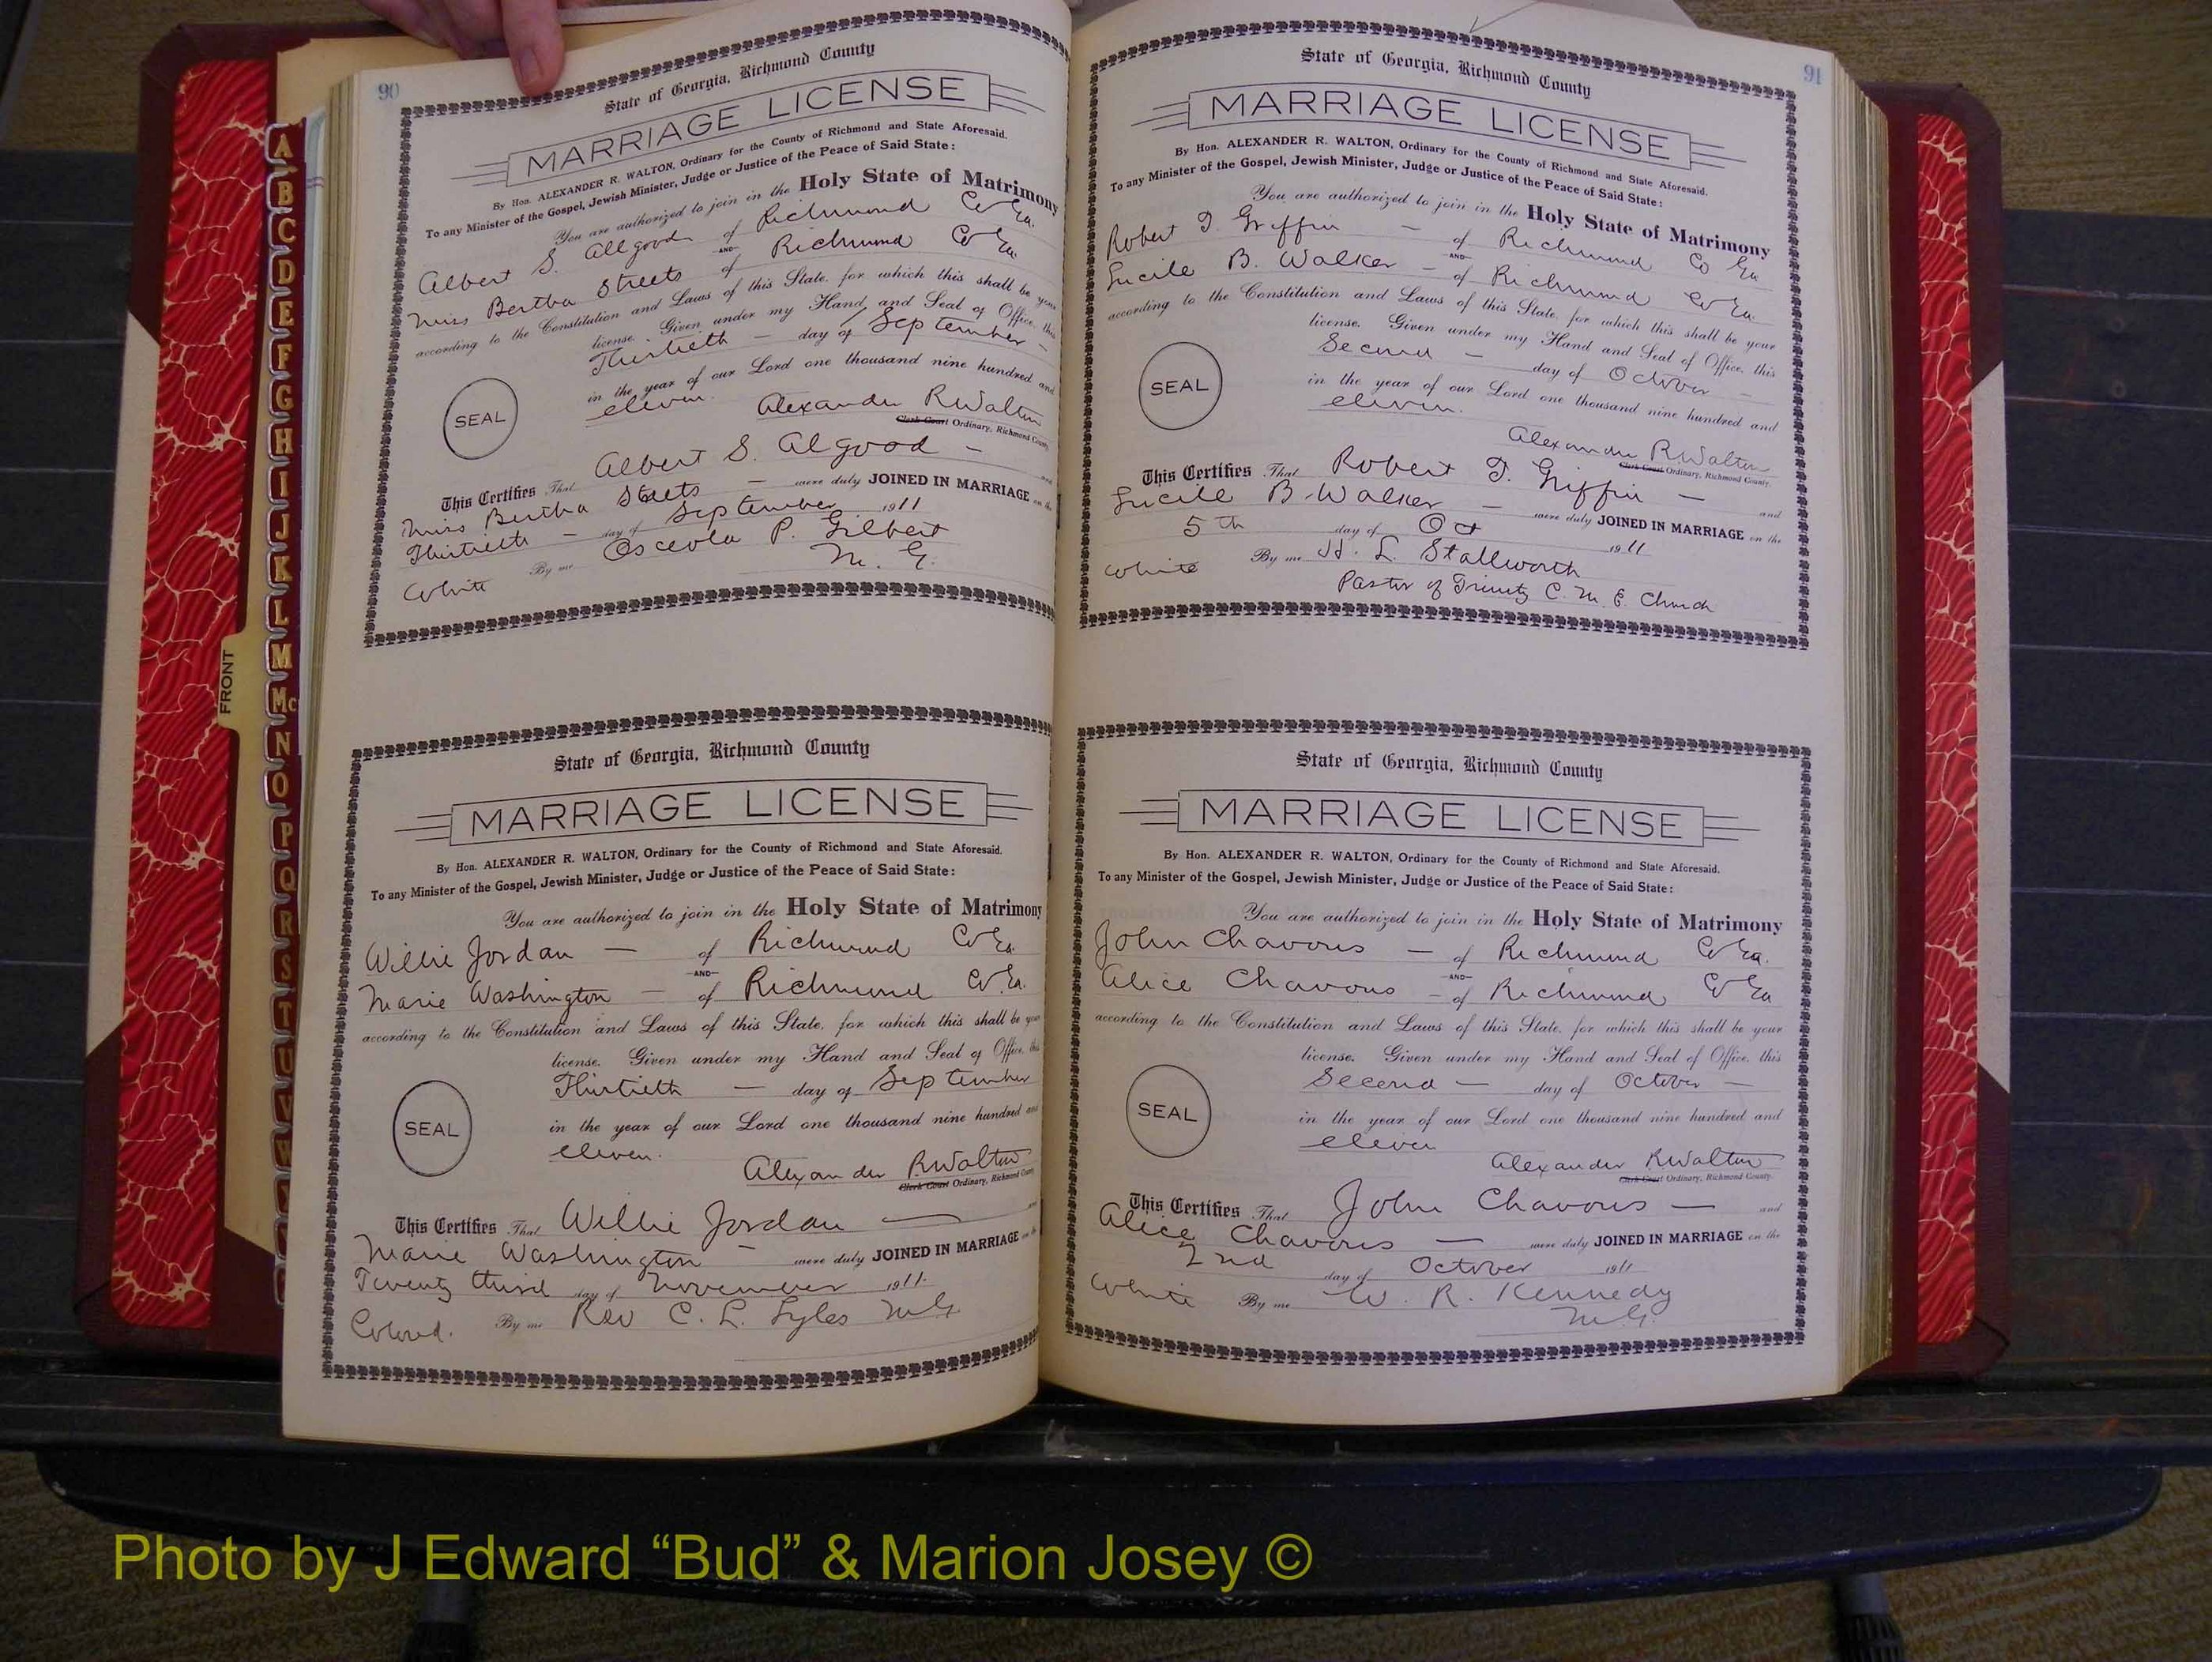 90
State of Georgia, Richmond County
MARRIAGE LICENSE
By Hon. ALEXANDER R. WALTON, Ordinary for the County of Richmond and State Aforesaid.
To any Minister of the Gospel, Jewish Minister, Judge or Justice of the Peace of Said State:
You are authorized to join in the Holy State of Matrimony
Albert S. Allgood of Richmond Co Ga.
AND
Miss Bertha Streets of Richmond Co Ga.
according to the Constitution and Laws of this State, for which this shall be your
license. Given under my Hand and Seal of Office, this
Thirtieth — day of September —
in the year of our Lord one thousand nine hundred and
eleven.
SEAL
Alexander R Walton
Clerk Court Ordinary, Richmond County
This Certifies That Albert S. Algood — and
Miss Bertha Steets — were duly JOINED IN MARRIAGE on the
Thirtieth — day of September 1911
White By me Osceola P. Gilbert
M. G.
State of Georgia, Richmond County
MARRIAGE LICENSE
By Hon. ALEXANDER R. WALTON, Ordinary for the County of Richmond and State Aforesaid.
To any Minister of the Gospel, Jewish Minister, Judge or Justice of the Peace of Said State:
You are authorized to join in the Holy State of Matrimony
Willie Jordan — of Richmond Co Ga.
AND
Marie Washington — of Richmond Co. Ga.
according to the Constitution and Laws of this State, for which this shall be your
license. Given under my Hand and Seal of Office, this
Thirtieth — day of September
in the year of our Lord one thousand nine hundred and
eleven.
SEAL
Alexander R Walton
Clerk Court Ordinary, Richmond County
This Certifies That Willie Jordan — and
Marie Washington — were duly JOINED IN MARRIAGE on the
Twenty third day of November 1911.
Colored. By me Rev C. L. Lyles M.G.
91
State of Georgia, Richmond County
MARRIAGE LICENSE
By Hon. ALEXANDER R. WALTON, Ordinary for the County of Richmond and State Aforesaid.
To any Minister of the Gospel, Jewish Minister, Judge or Justice of the Peace of Said State:
You are authorized to join in the Holy State of Matrimony
Robert T. Griffin — of Richmond Co Ga
AND
Lucile B. Walker — of Richmond Co Ga.
according to the Constitution and Laws of this State, for which this shall be your
license. Given under my Hand and Seal of Office, this
Second — day of October —
in the year of our Lord one thousand nine hundred and
eleven.
SEAL
Alexander R Walton
Clerk Court Ordinary, Richmond County.
This Certifies That Robert T. Griffin — and
Lucile B. Walker — were duly JOINED IN MARRIAGE on the
5th day of Oct 1911
White By me H. L. Stallworth
Pastor of Trinity C. M. E. Church
State of Georgia, Richmond County
MARRIAGE LICENSE
By Hon. ALEXANDER R. WALTON, Ordinary for the County of Richmond and State Aforesaid.
To any Minister of the Gospel, Jewish Minister, Judge or Justice of the Peace of Said State:
You are authorized to join in the Holy State of Matrimony
John Chavous — of Richmond Co Ga.
AND
Alice Chavous — of Richmond Co Ga
according to the Constitution and Laws of this State, for which this shall be your
license. Given under my Hand and Seal of Office, this
Second — day of October —
in the year of our Lord one thousand nine hundred and
eleven
SEAL
Alexander R Walton
Clerk Court Ordinary, Richmond County.
This Certifies That John Chavous — and
Alice Chavous — were duly JOINED IN MARRIAGE on the
2nd day of October 1911
White By me W. R. Kennedy
M.G.
FRONT
A
B
C
D
E
F
G
H
I
J
K
L
M
Mc
N
O
P
Q
R
S
T
U
V
W
Photo by J Edward “Bud” & Marion Josey ©